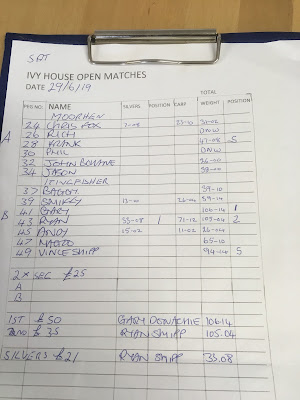 SAT
IVY HOUSE OPEN MATCHES
DATE 29/6/19
TOTAL
PEG NO. NAME SILVERS POSITION CARP WEIGHT POSITION
MOORHEN
24 CHRIS FOX 7-08 23-10
26 RICH DNW
A 28 FRANK 47-08 S
30 PHIL DNW
32 JOHN
34 JASON
KINGFISHER
37 39-10
39 SMIFFY 13-00 59-14
41 GARY 106-14 1
B 43 RYAN 33-08 1 71-12 105-04 2
45 ANDY 15-02 11-02 26-04
47 65-10
49 VINCE SHIPP 94-14 S
2 x SEC £25
A
B
1ST £50 GARY DONACHIE 106-14
2ND £35 RYAN SHIPP 105.04
SILVERS £21 RYAN SHIPP 33.08